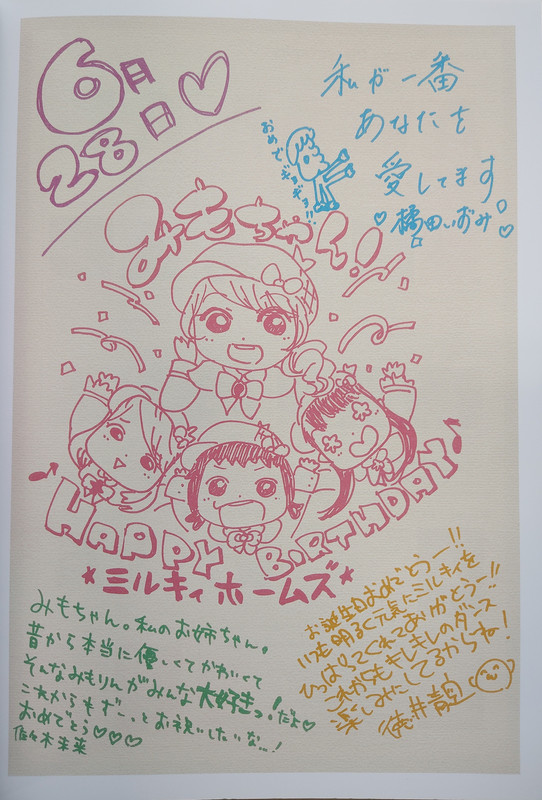 6月
28日♡
私が一番
あなたを
愛してます。
♡橘田いずみ♡
おめでギョギョ!!
みもちゃん!!
HAPPY BIRTHDAY♪
*ミルキィホームズ*
みもちゃん。私のお姉ちゃん。
昔から本当に優しくてかわいくて
そんなみもりんがみんな大好きっ!だよ♡
これからもずーっとお祝いしたいな…!
おめでとう♡♡♡
佐々木未来
お誕生日おめでとうー!!
いつも明るく元気にミルキィを
ひっぱってくれてありがとうー!!
これからもキレキレのダンス
楽しみにしてるからね!
徳井青空